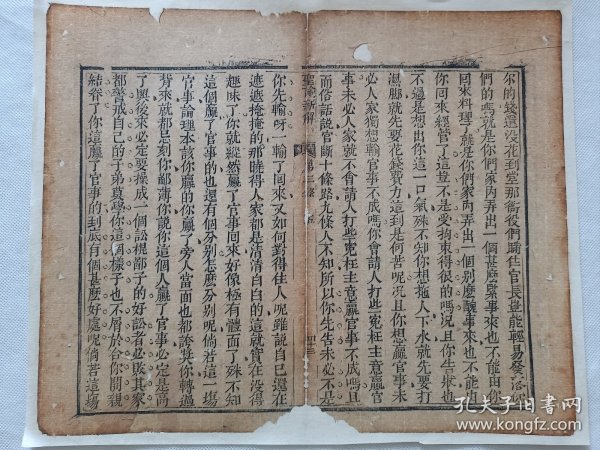 你的錢還没花到堂那衙役們瞞住官長豈能輕易發落
們的嗎就是你們家内弄出一個甚麽累事來也不能由你
回來料理了就是你們家内弄出一個别麽醜事來也不能由
回來經管了這豈不是受拘束得很的嗎况且你生狀也
不過是想出你這一口氣殊不知你想拖人下水就先要打
濕脚就先要花錢費力這到是何苦呢况且你想贏官事未
必人家獨想輸官事不成嗎你會請人打些寃枉主意贏官
事未必人家就不會請人打些寃枉主意贏官事不成嗎且
而俗話説官斷十條路九條人不知所以你先告未必不是
聖諭新解
第三條
四十三
你先輸呀一輸了回來又如何對得住人呢雖説自己還在
遮遮掩掩的那曉得人家都是清清白白的這就實在没得
趣味了你就縱然贏了官事回來好像極有體面了殊不知
這個贏了官事的也還有個分别怎麽分别呢倘若這一塲
官事論理本該你贏的你贏了旁人當面也都誇奬你轉過
背來就都怨刻你鄙薄你説你這個人贏了官事必定是高
了興後來必定要操成一個訟棍鄙子的好訟者必敗其家
都警戒自己的子弟莫學你這個樣子也不屑於合你開親
結眷了你這贏了官事的到底有個甚麽好處呢倘若這塲
孔夫子旧书网
www.kongfz.com